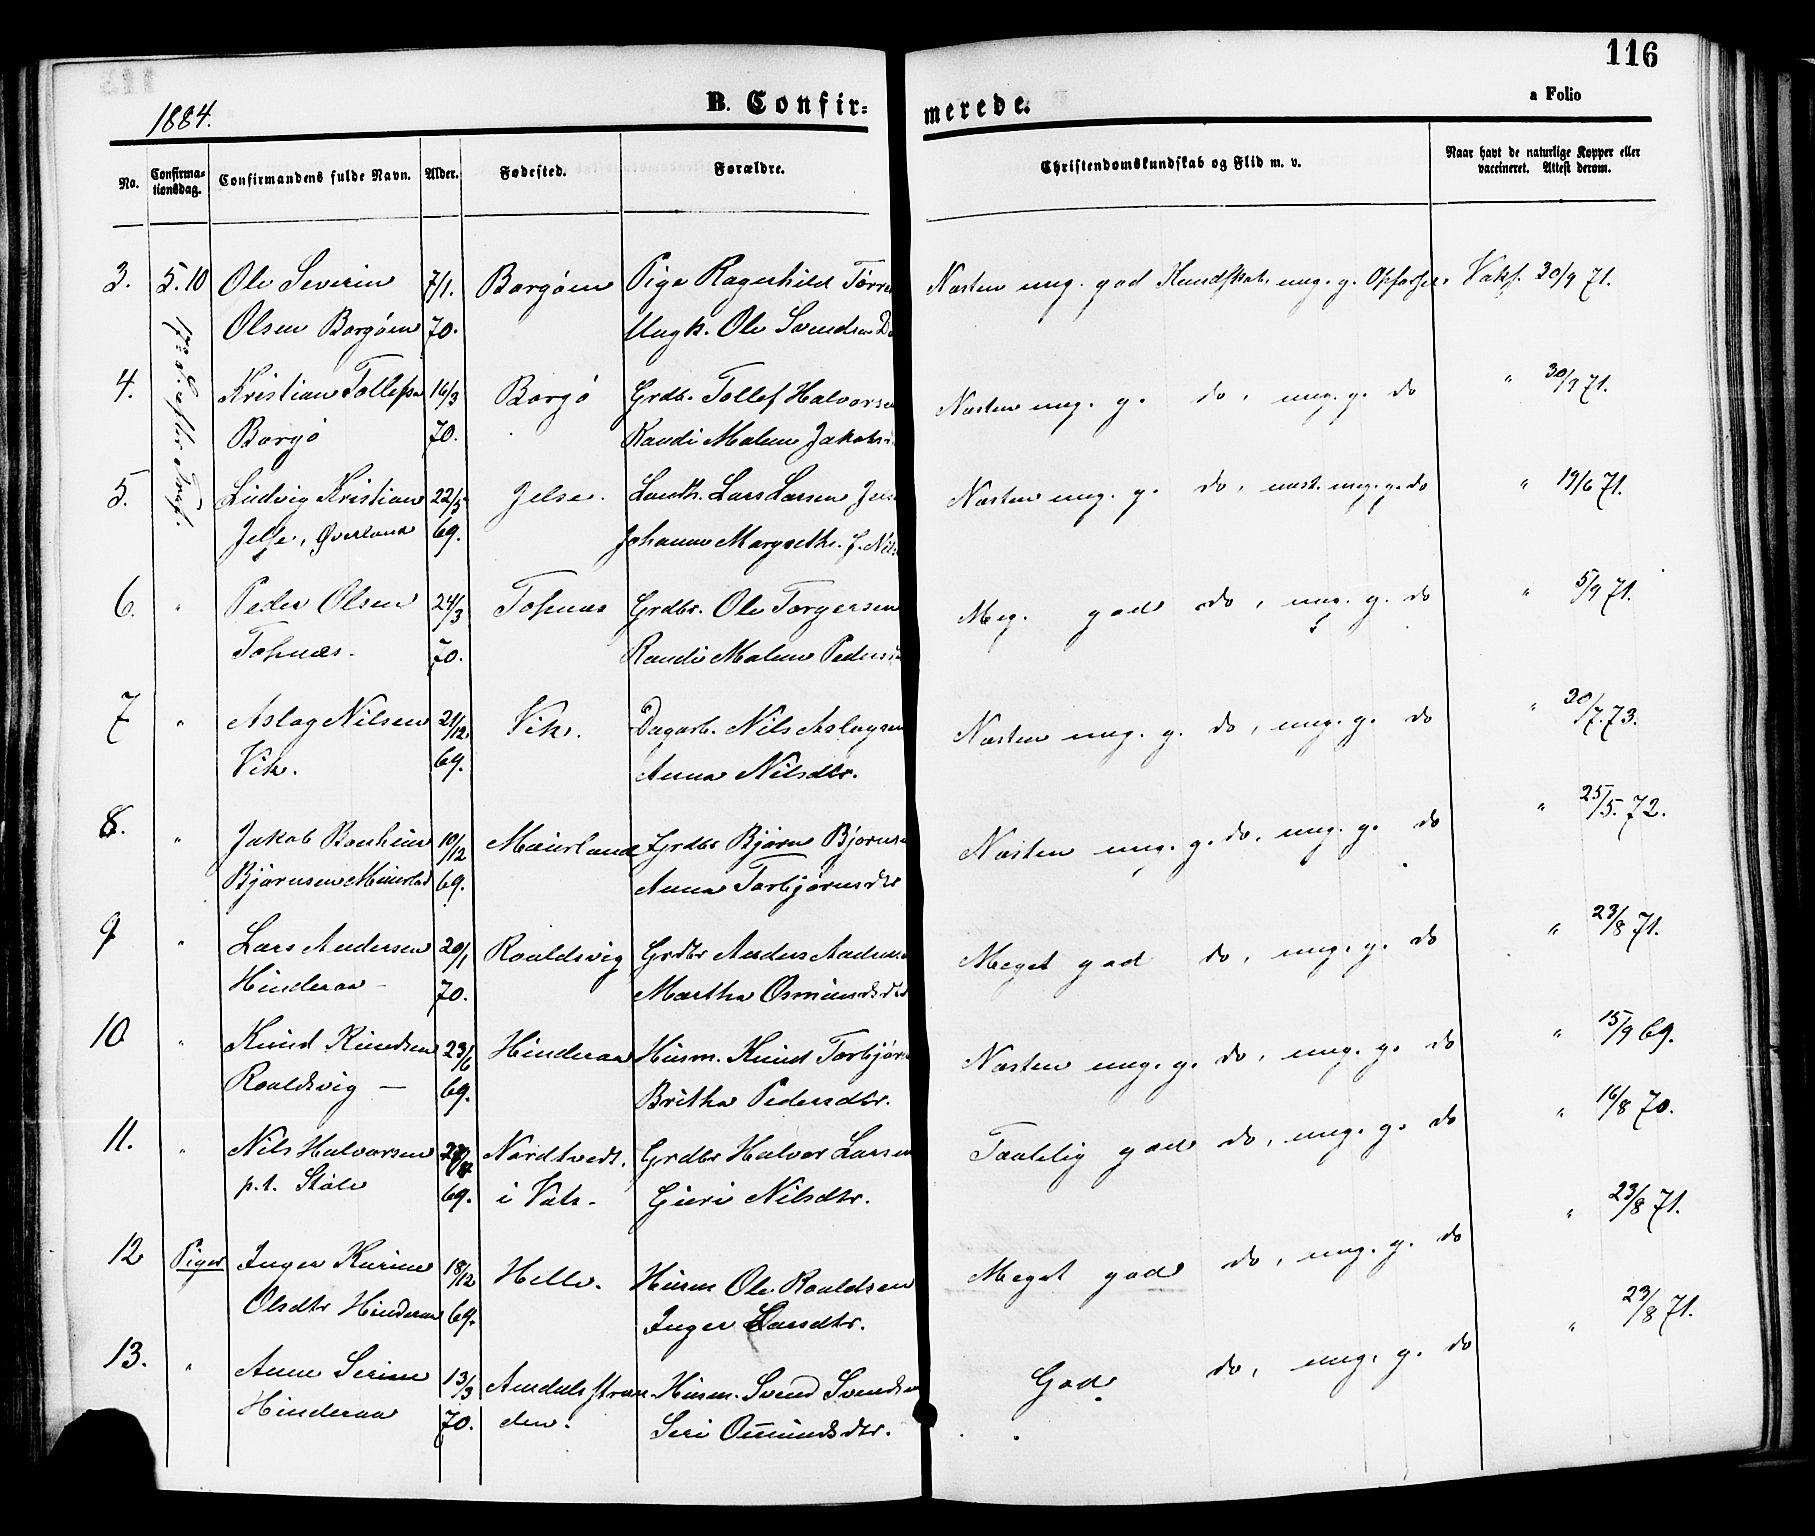 116
1884.
B. Confir=
merede.
a Folio
No.
Confirma-
tionsdag.
Confirmandens fulde Navn.
Alder.
Fødested.
Forældre.
Christendomskundskab og Flid m. v.
Naar havt de naturlige Kopper eller
vaccineret. Attest derom.
3. 5.10 Ole Severin 7/1. Borgøen Pige Ragnhild Næsten meg. god Kundskab, meg. g. Opførsel. Vaks. 30/9 71.
Olsen Borgøen 70. Ungk. Ole Svendsen
17de S. efter Tref.
4. Kristian Tollefsen 16/3 Borgø Grdbr. Tollef Halvorsen Næsten meg. g. do, meg. g. do " 30/9 71.
Borgø 70. Randi Malene
5. Ludvig Kristian 22/5 Jelse. Landh. Lars Larsen Næsten meg. g. do, næst. meg. g. do " 19/6 71.
Jelse, Øverland 69. Johanne Margrethe f.
6. " Peder Olsen 24/3 Tofnæs Grdbr. Ole Torgersen Meg. god do, meg. g. do " 5/9 71.
Tofnæs. 70. Randi Malene
7 " Aslag Nilsen 21/12 Vik. Dagarb. Nils Aslagsen Næsten meg. g. do, meg. g. do " 30/7. 73.
Vik. 69. Anna Nilsdtr.
8. " Jakob 10/12 Grdbr Bjørn Næsten meg. g. do, meg. g. do " 25/5. 72.
Bjørnsen 69. Anna Torbjørnsdtr
9 " Lars Andersen 20/1 Roaldsvig Grdbr Anders Meget god do, meg. g. do " 23/8 71.
Hinderaa - 70. Martha Osmundsdtr
10 " Knud Knudsen 23/6 Hinderaa Husm. Knud Næsten meg. g. do, meg. g. do " 15/9 69.
Roaldsvig — 69. Britha Pedersdtr.
11. " Nils Halvorsen Nordtvedt. Grdbr Halvor Larsen Taalelig god do, meg. g. do " 16/8 70.
p.t. Støle 69. i Vats. Guri Nilsdtr.
12 Piger Inger Karine 18/12 Helle. Husm Ole Roaldsen Meget god do, meg. g. do " 23/8 71.
Olsdtr Hinderaa 69. Inger Larsdtr.
13. " Anne Serine 13/3 Amdalsstran- Husm. Svend Svendsen God do, meg. g. do " 23/8 71.
Hinderaa 70. den. Siri Osmundsdtr.